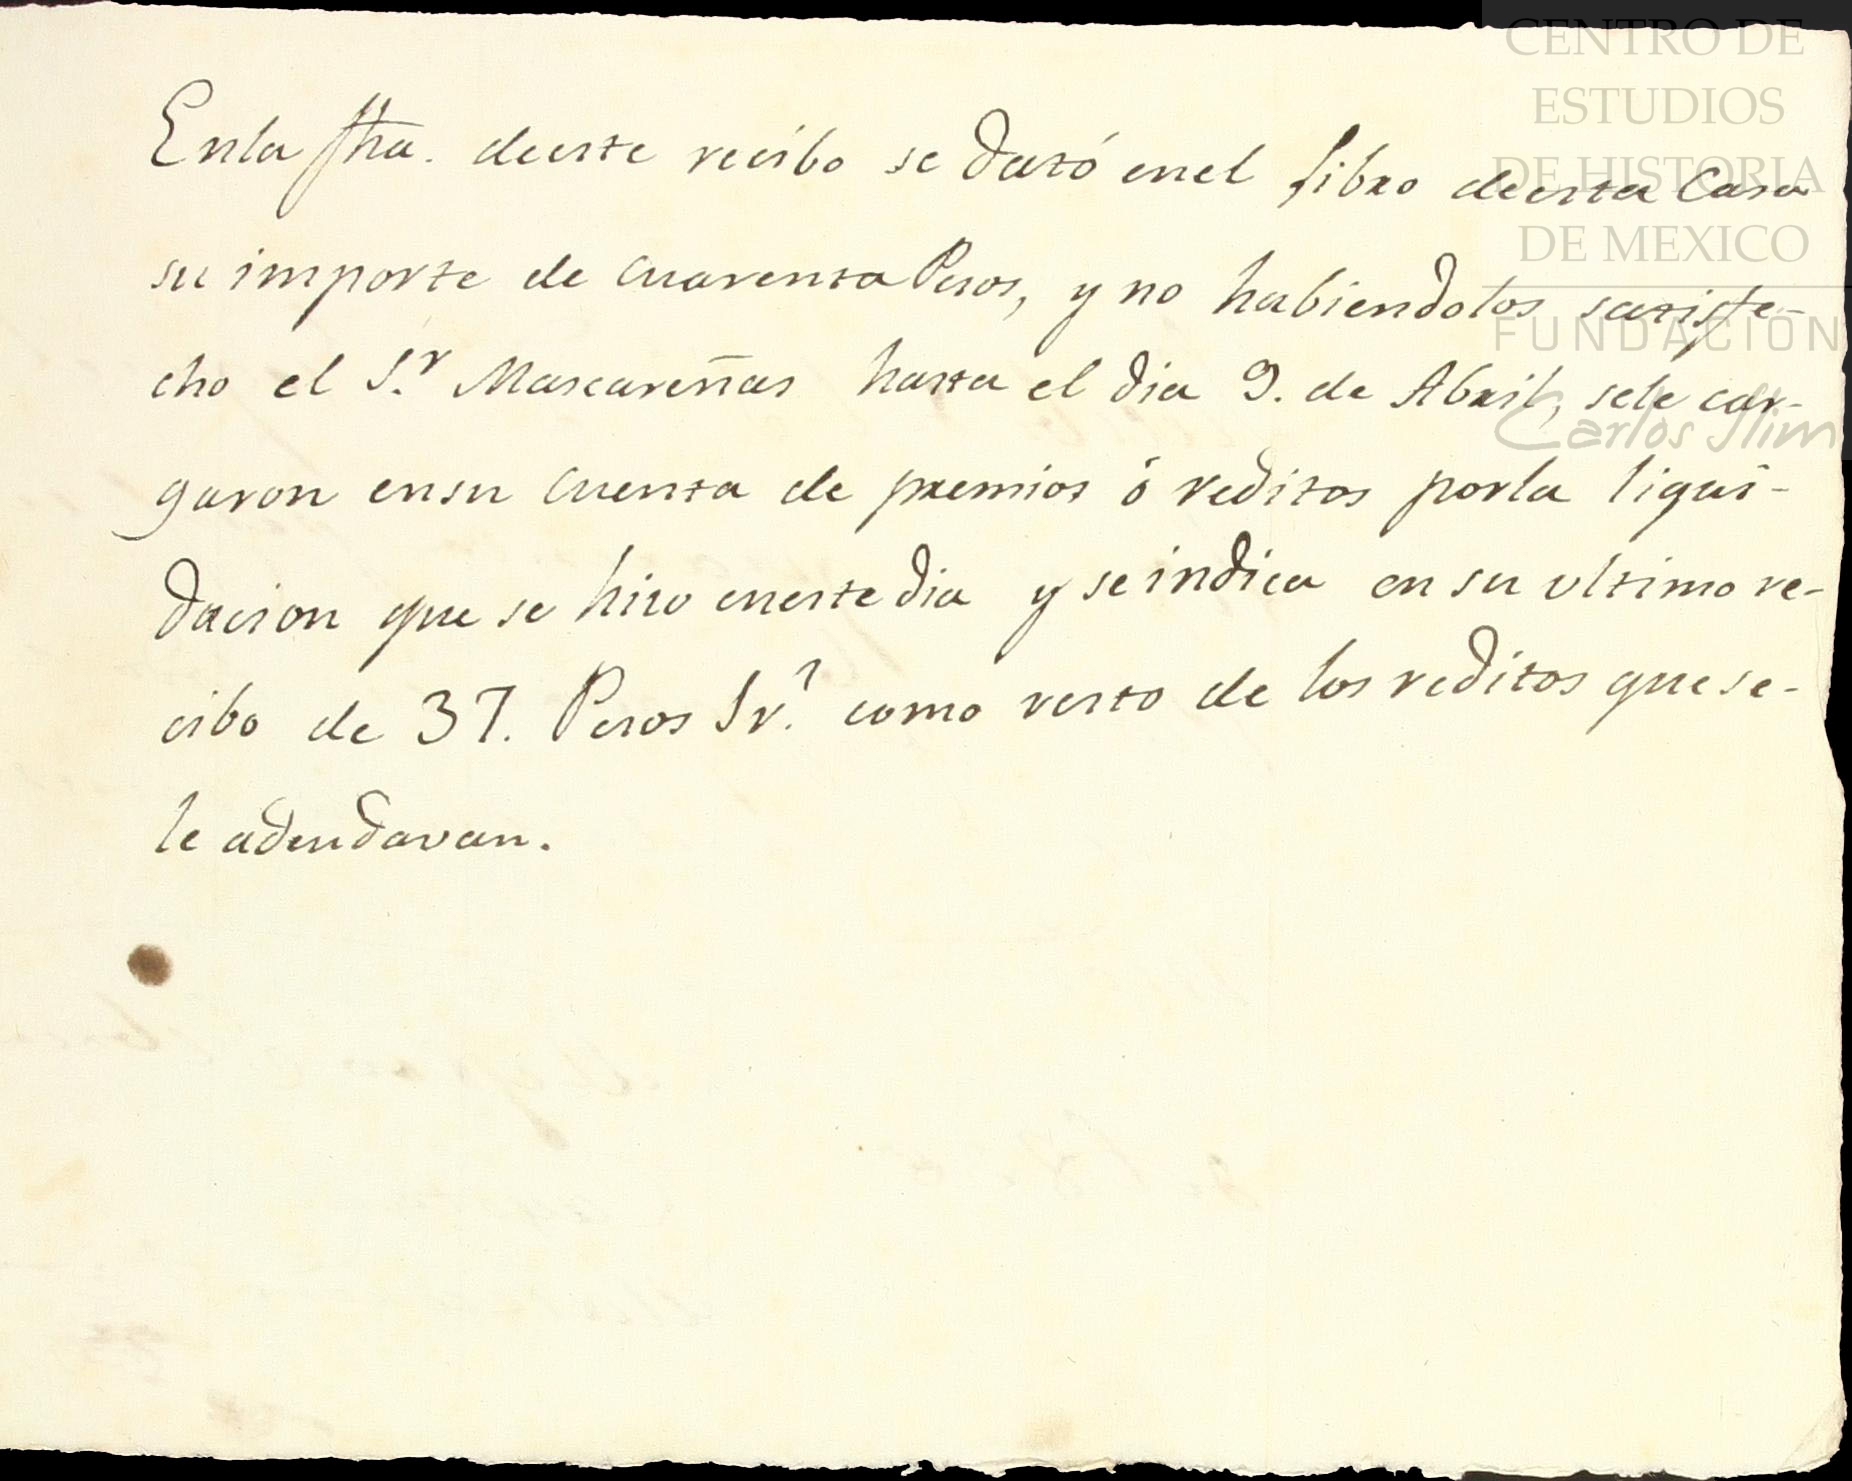 Enla fha. deeste recibo se dató enel libro deesta Casa
su importe de cuarenta Pesos, y no habiendolos satisfe-
cho el S.r Mascareñas hasta el dia 9. de Abril, sele car-
garon ensu cuenta de premios ó reditos porla liqui-
dacion que se hizo eneste dia y se indica en su ultimo re-
cibo de 37. Pesos como resto de los reditos que se-
le adeudavan.
CENTRO DE
ESTUDIOS
DE HISTORIA
DE MEXICO
FUNDACIÓN
Carlos Slim